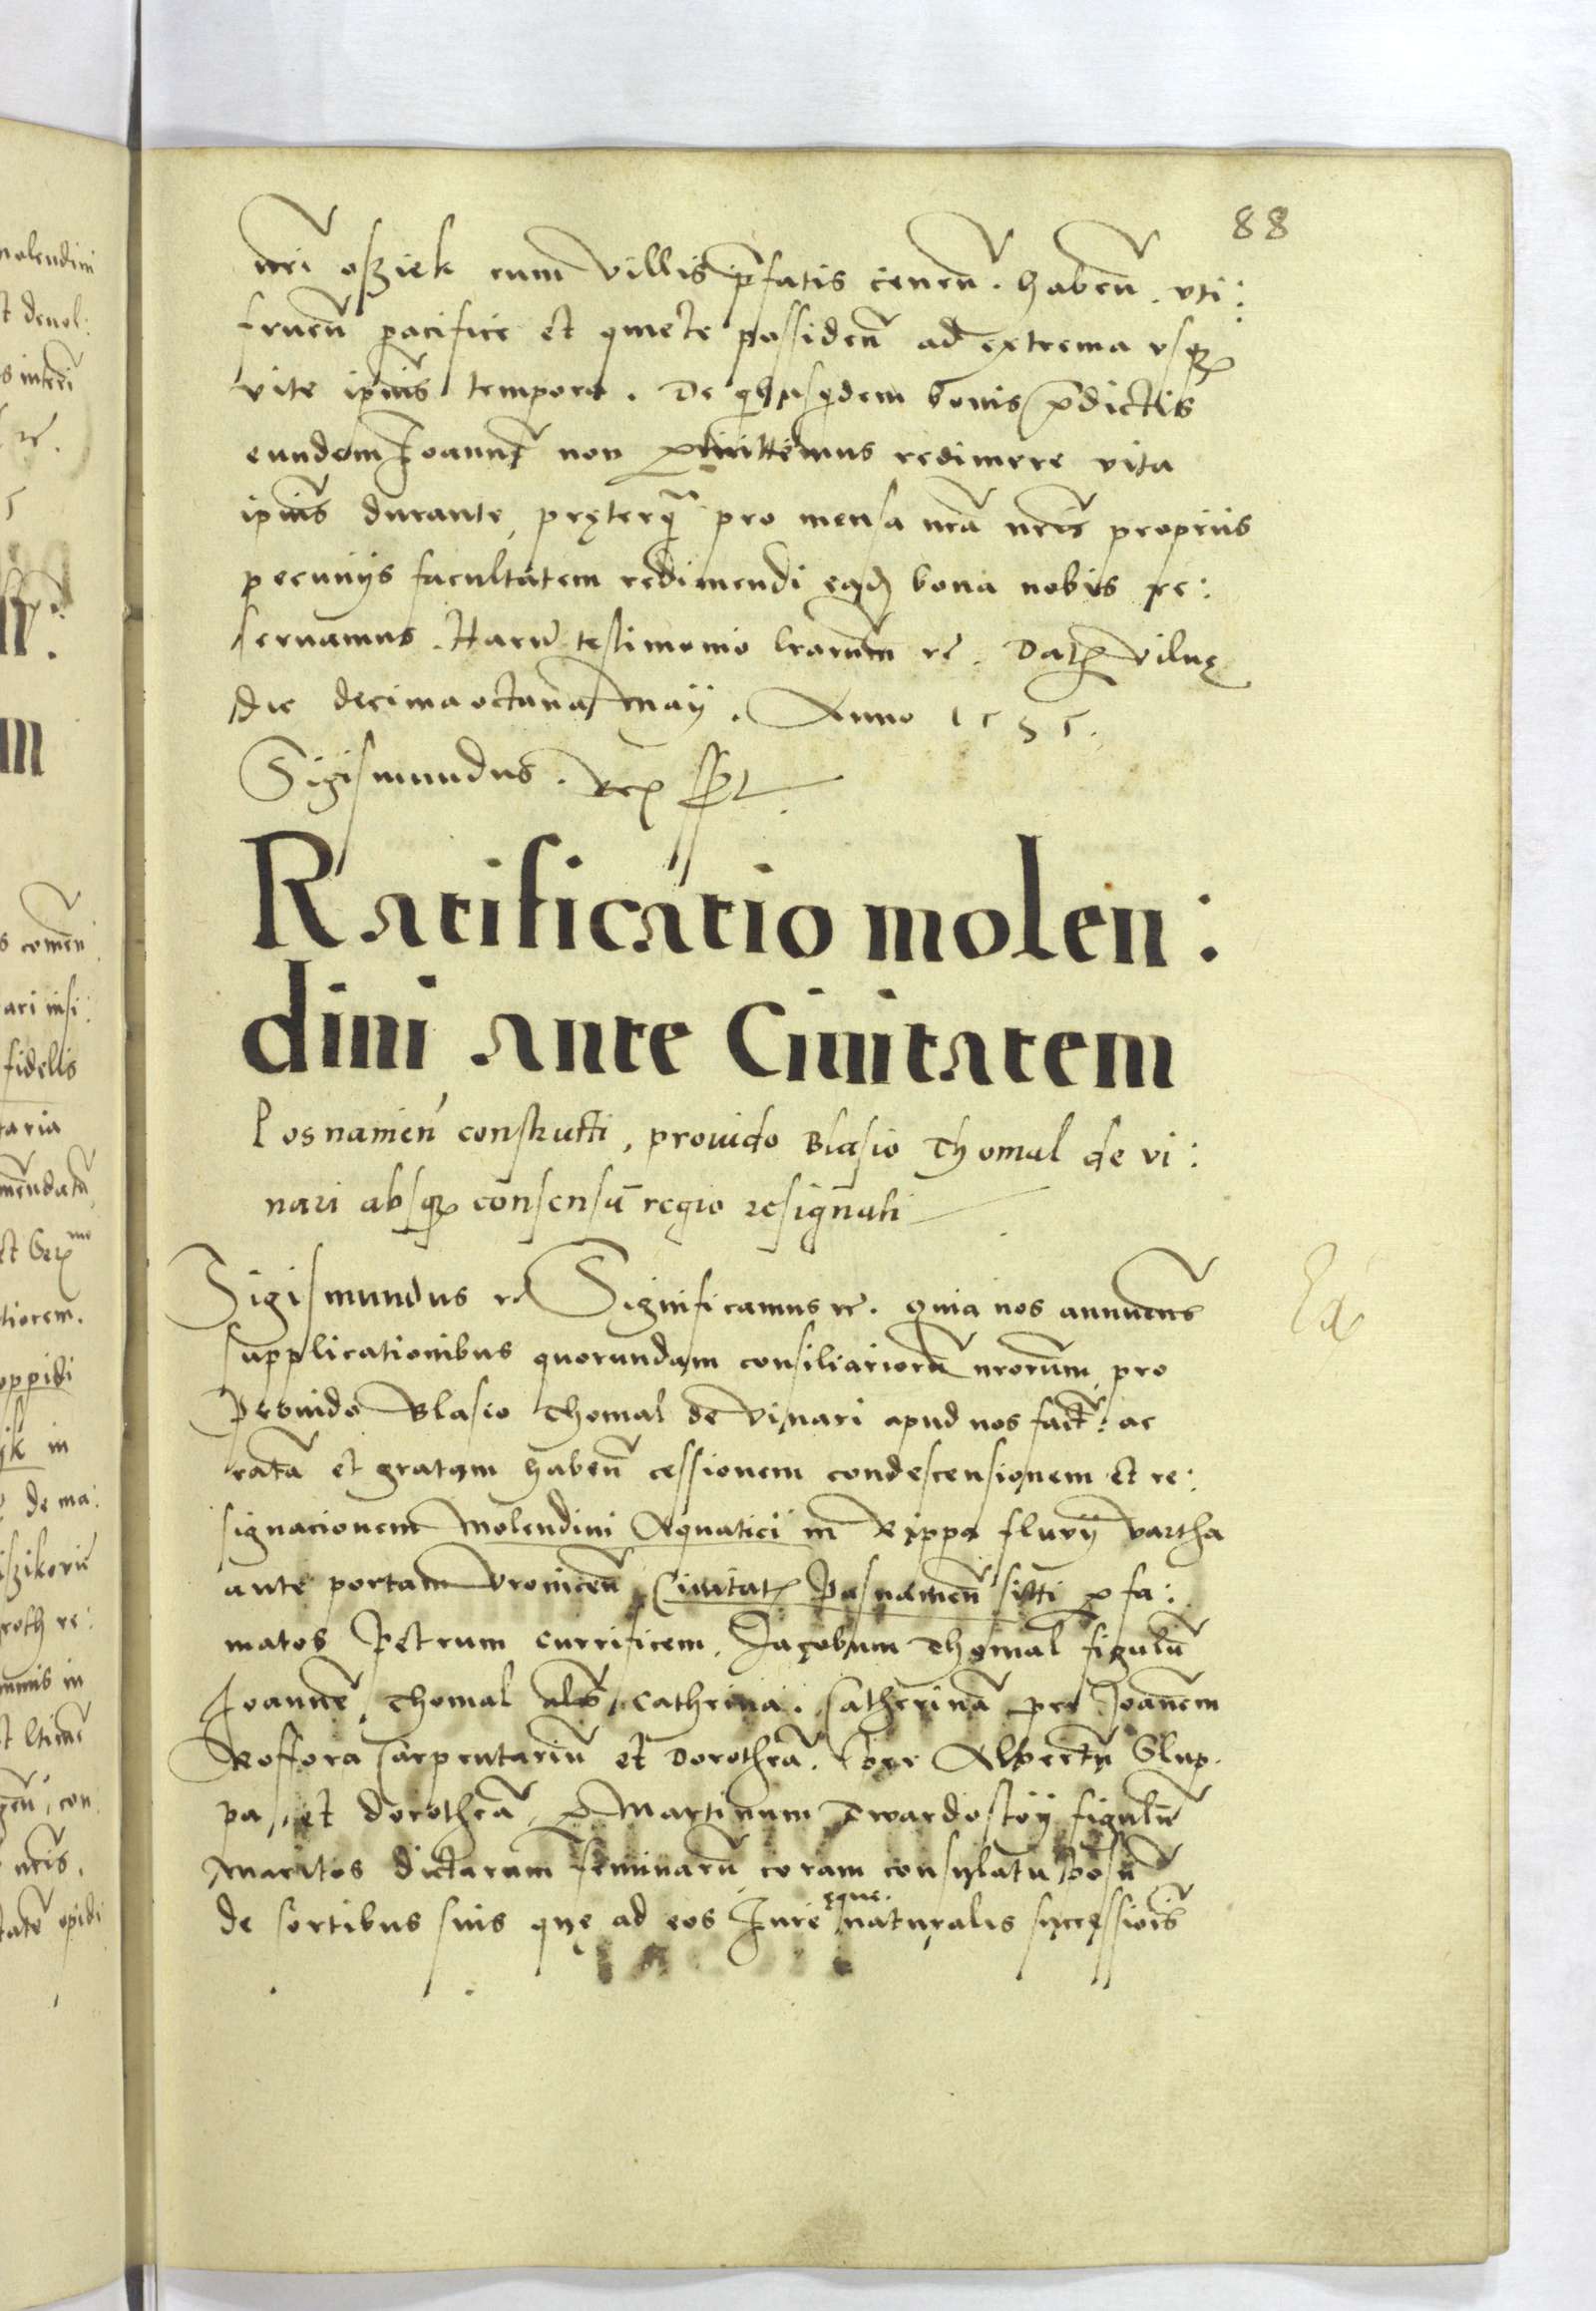 88
nri osziek cum villis p̄fatis tenen̄. haben̄. vti:
fruen̄ pacifice et quiete possiden̄ ad extrema vsqꝫ
vite ipius tempora. De quibusquidem bonis p̄dictis
eundem Joannē non p̱mittemus redimere vita
ipius durante, pręterq̄ pro mensa nrā nris propriis
pecunijs facultatem redimendi eadē bona nobis re:
seruamus. Harū testimonio lrarum rc̄. Datꝫ Vilnę
die decima octaua Maij. Anno 1535.
Sigismundus. Rex sspt
Ratificatio molen:
dini ante Ciuitatem
Posnanien̄ constructi, prouido Blasio Thomal de vi:
nari absqꝫ consensū regio resignati
Sigismundus rc̄ Significamus rc̄. quia nos annuentes
supplicationibus quorundam consiliariorū nrorum, pro
Prouido Blasio Thomal de Vinari apud nos fact̄: ac
ratā et gratam haben̄ cessionem condescensionem et re:
signacionem Molendini Aquatici in Rippa fluvij Vartha
ante portam Vronicen̄ Ciuitatꝫ Posnanien̄ sitti p̱ fa:
matos Petrum currificem, Jacobum Thomal figulū
Joannē, Thomal als̄, Catherina. Catherinā per Joannem
Koffora Carpentariū et Dorotheā. per Albertū Slup.
pa, et Dorotheā, p̱ Martinum Twardostoij figulū
Maritos dictarum feminarū coram consulatu Posn̄
de sortibus suis quę ad eos Jure ęque naturalis successiois